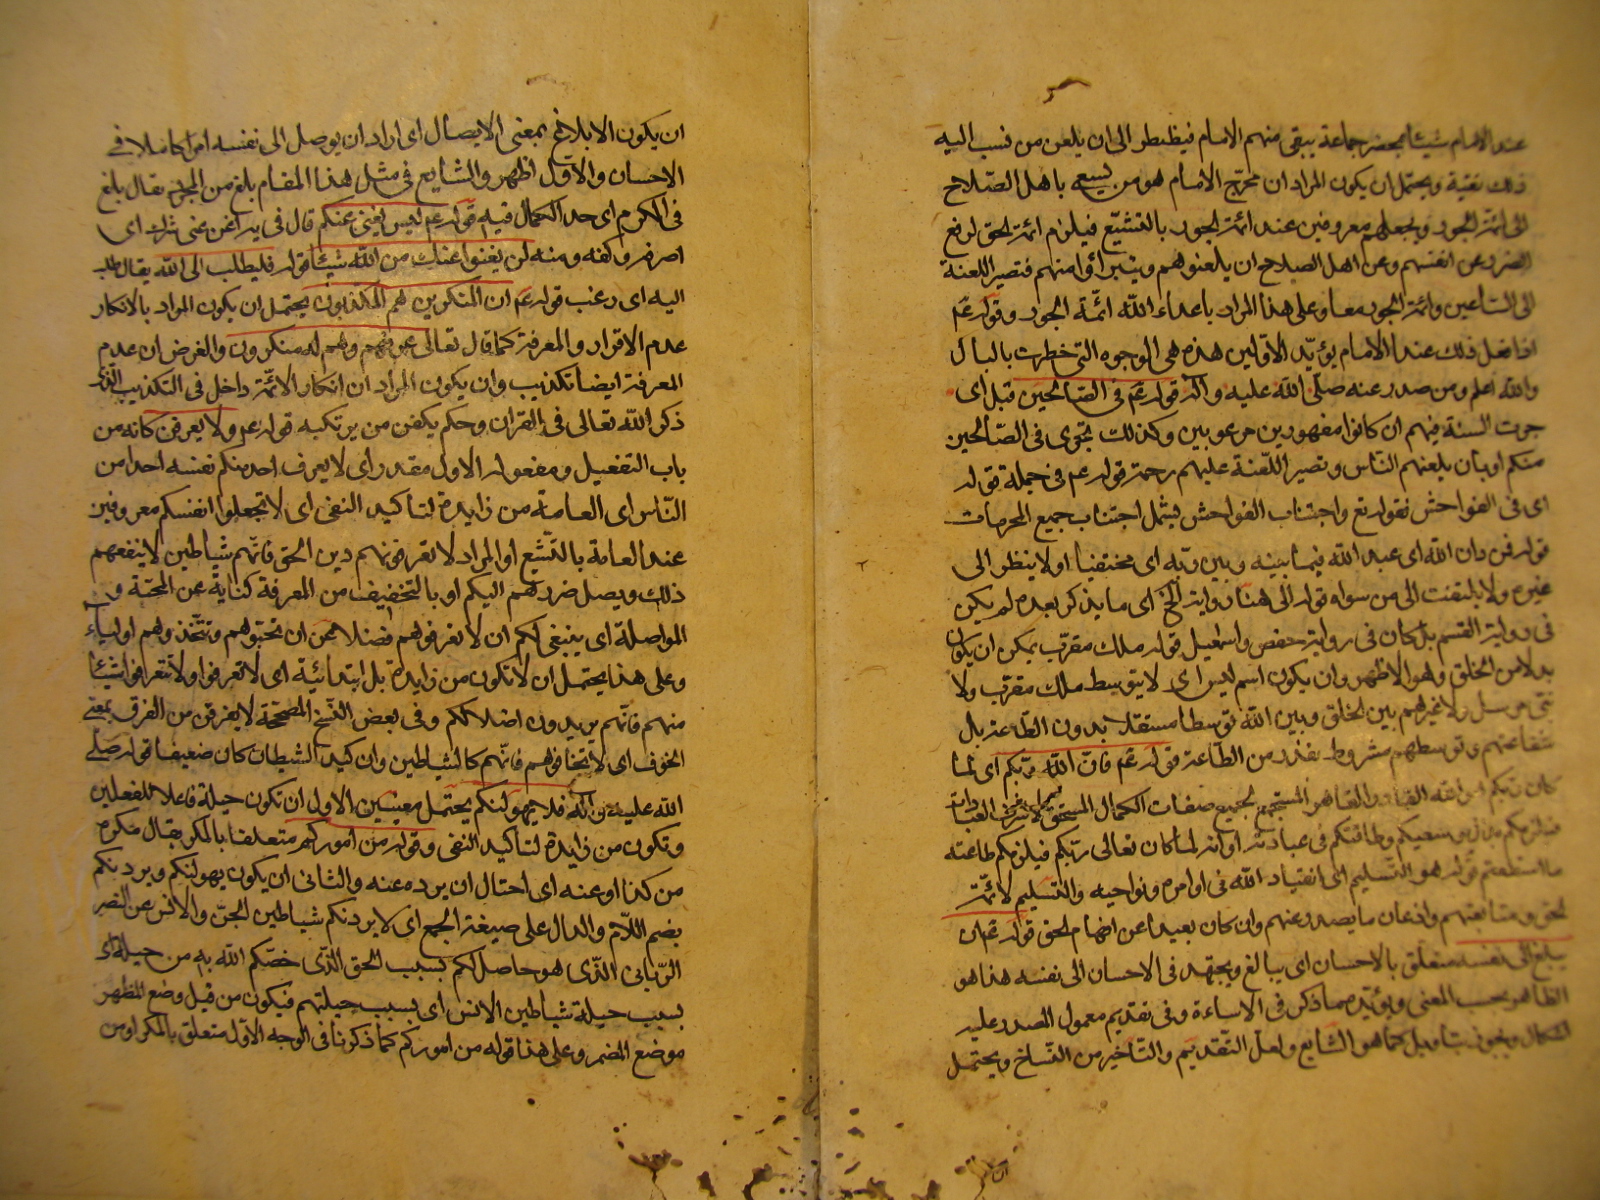 عند الامام شيئا بمحضر جماعة يبقى منهم الامام فيظطر الى ان يلعن من نسب اليه
ذلك بقية ويحتمل ان يكون المراد ان محرج الامام هو من يسعى باهل الصلاح
الى ائمة الجور ويجعلهم معروفين عند ائمة الجور بالتشيع فيلزم ائمة الحق لرفع
الضرر عن انفسهم وعن اهل الصلاح ان يلعنوهم ويتبرأوا منهم فتصير اللعنة
الى الساعين وائمة الجور معا وعلى هذا المراد باعداء الله ائمة الجور وقوله عم
اذا فعل ذلك عند الامام يؤيد الاولين هذه هى الوجوه التى خطرت بالبال
والله اعلم ومن صدر عنه صلى الله عليه وآله قوله عم فى الصالحين قبل اى
جرت السنة فيهم ان كانوا مقهورين مرعوبين وكذلك تجرى فى الصالحين
منكم او بان يلعنهم الناس وتصير اللعنة عليهم رحمة قوله عم فى جملة قوله
اى فى الفواحش فقوله تع واجتناب الفواحش يشمل اجتناب جميع المحرمات
قوله فمن دان الله اى عبد الله فيما بينه وبين ربه اى مختفيا او لا ينظر الى
غيره ولا يلتفت الى من سواه قوله الى هنا رواية الخ اى ما يذكر بعده لم يكن
فى رواية القسم بل كان فى رواية حفص واسمعيل قوله ملك مقرب يمكن ان يكون
بدلا من الخلق وهو الاظهر وان يكون اسم ليس اى لا يتوسط ملك مقرب ولا
نبى مرسل ولا غيرهم بين الخلق وبين الله توسطا مستقلا بدون الطاعة بل
شفاعتهم وتوسطهم مشروط بقدر من الطاعة قوله عم فان الله ربكم اى لما
كان ربكم هو الله القادر القاهر المستجمع لجميع صفات الكمال المستحق لاشرف العبادات
فيلزمكم بذل وسعكم وطاقتكم فى عبادته او انه لما كان تعالى ربكم فيلزمكم طاعته
ما استطعتم قوله هو التسليم الى انقياد الله فى اوامره ونواهيه والتسليم لائمة
الحق ومتابعتهم واذعان ما يصدر عنهم وان كان بعيدا عن افهام الحق قوله عم ان
يبلغ الى نفسه متعلق بالاحسان اى يبالغ ويجتهد فى الاحسان الى نفسه هذا هو
الظاهر بحسب المعنى ويؤيده ما ذكر فى الاساءة وفى تقديم معمول المصدر عليه
اشكال ويجوز بتاويل كما هو الشايع ولعل التقديم والتاخير من النساخ ويحتمل
ان يكون الابلاغ بمعنى الايصال اى اراد ان يوصل الى نفسه امرا كاملا فى
الاحسان والاول اظهر والشايع فى مثل هذا المقام بلغ من المجرد يقال بلغ
فى الكرم اى حد الكمال فيه قوله عم ليس يغنى عنكم قال فى يه اغن عنى شرك اى
اصرفه وكفه ومنه لن يغنوا عنك من الله شيئا قوله فليطلب الى الله يقال طلب
اليه اى رغب قوله عم ان المنكرين هم المكذبون يحتمل ان يكون المراد بالانكار
عدم الاقرار والمعرفة كما قال تعالى عرفهم وهم له منكرون والغرض ان عدم
المعرفة ايضا تكذيب وان يكون المراد ان انكار الائمة داخل فى التكذيب الذى
ذكر الله تعالى فى القران وحكم بكفر من يرتكبه قوله عم ولا يعرفن كانه من
باب التفعيل ومفعوله الاول مقدر اى لا يعرف احد منكم نفسه احدا من
الناس اى العامة من زايدة لتاكيد النفى اى لا تجعلوا انفسكم معروفين
عند العامة بالتشيع او المراد لا تعرفونهم دين الحق فانهم شياطين لا ينفعهم
ذلك ويصل ضررهم اليكم او بالتخفيف من المعرفة كناية عن المحبة و
المواصلة اى ينبغى لكم ان لا تعرفوهم فضلا عن ان تحبوهم وتتخذوهم اولياء
وعلى هذا يحتمل ان لا تكون من زايدة بل ابتدائية اى لا تعرفوا ولا تتعرفوا شيئا
منهم فانهم يريدون اضلالكم وفى بعض النسخ المصححة لا يفرقن من الفرق بمعنى
الخوف اى لا تخافوهم فانهم كالشياطين وان كيد الشيطان كان ضعيفا قوله صلى
الله عليه وآله فلا يهولنكم يحتمل معنيين الاول ان تكون حيلة فاعلا للفعلين
وتكون من زايدة لتاكيد النفى وقوله من اموركم متعلقا بالمكر يقال مكره
من كذا او عنه اى احتال ان يرده عنه والثانى ان يكون يهولنكم ويردنكم
بضم اللام والدال على صيغة الجمع اى لا يردنكم شياطين الجن والانس عن النصر
الربانى الذى هو حاصل لكم بسبب الحق الذى خصكم الله به من حيلة اى
بسبب حيلة شياطين الانس اى بسبب حيلتهم فيكون من قبل وضع المظهر
موضع المضمر وعلى هذا قوله من اموركم كما ذكرنا فى الوجه الاول متعلق بالمكر او من